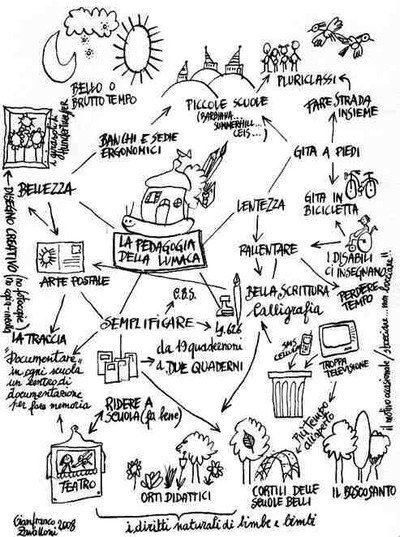 BELLO O
BRUTTO TEMPO
PICCOLE SCUOLE
(BARBIANA...
SUMMERHILL...
CEIS...)
PLURICLASSI
FARE STRADA
INSIEME
BANCHI E SEDIE
ERGONOMICI
GITA A PIEDI
BELLEZZA
LENTEZZA
GITA IN
BICICLETTA
DISEGNO CREATIVO
LA PEDAGOGIA
DELLA LUMACA
RALLENTARE
I DISABILI
CI INSEGNANO
ARTE POSTALE
PERDERE
TEMPO
C.B.S.
BELLA SCRITTURA
Calligrafia
SEMPLIFICARE
LA TRACCIA
Documentare
in ogni scuola
un centro di
documentazione
per fare memoria
da 19 quadernoni
a DUE QUADERNI
SMS
CELLULARI
TROPPA
TELEVISIONE
RIDERE A
SCUOLA (fa bene)
Più tempo
all'aperto
TEATRO
ORTI DIDATTICI
CORTILI DELLE
SCUOLE BELLI
IL BOSCO SANTO
i diritti naturali di bimbe e bimbi
Gianfranco
Zavalloni
2008